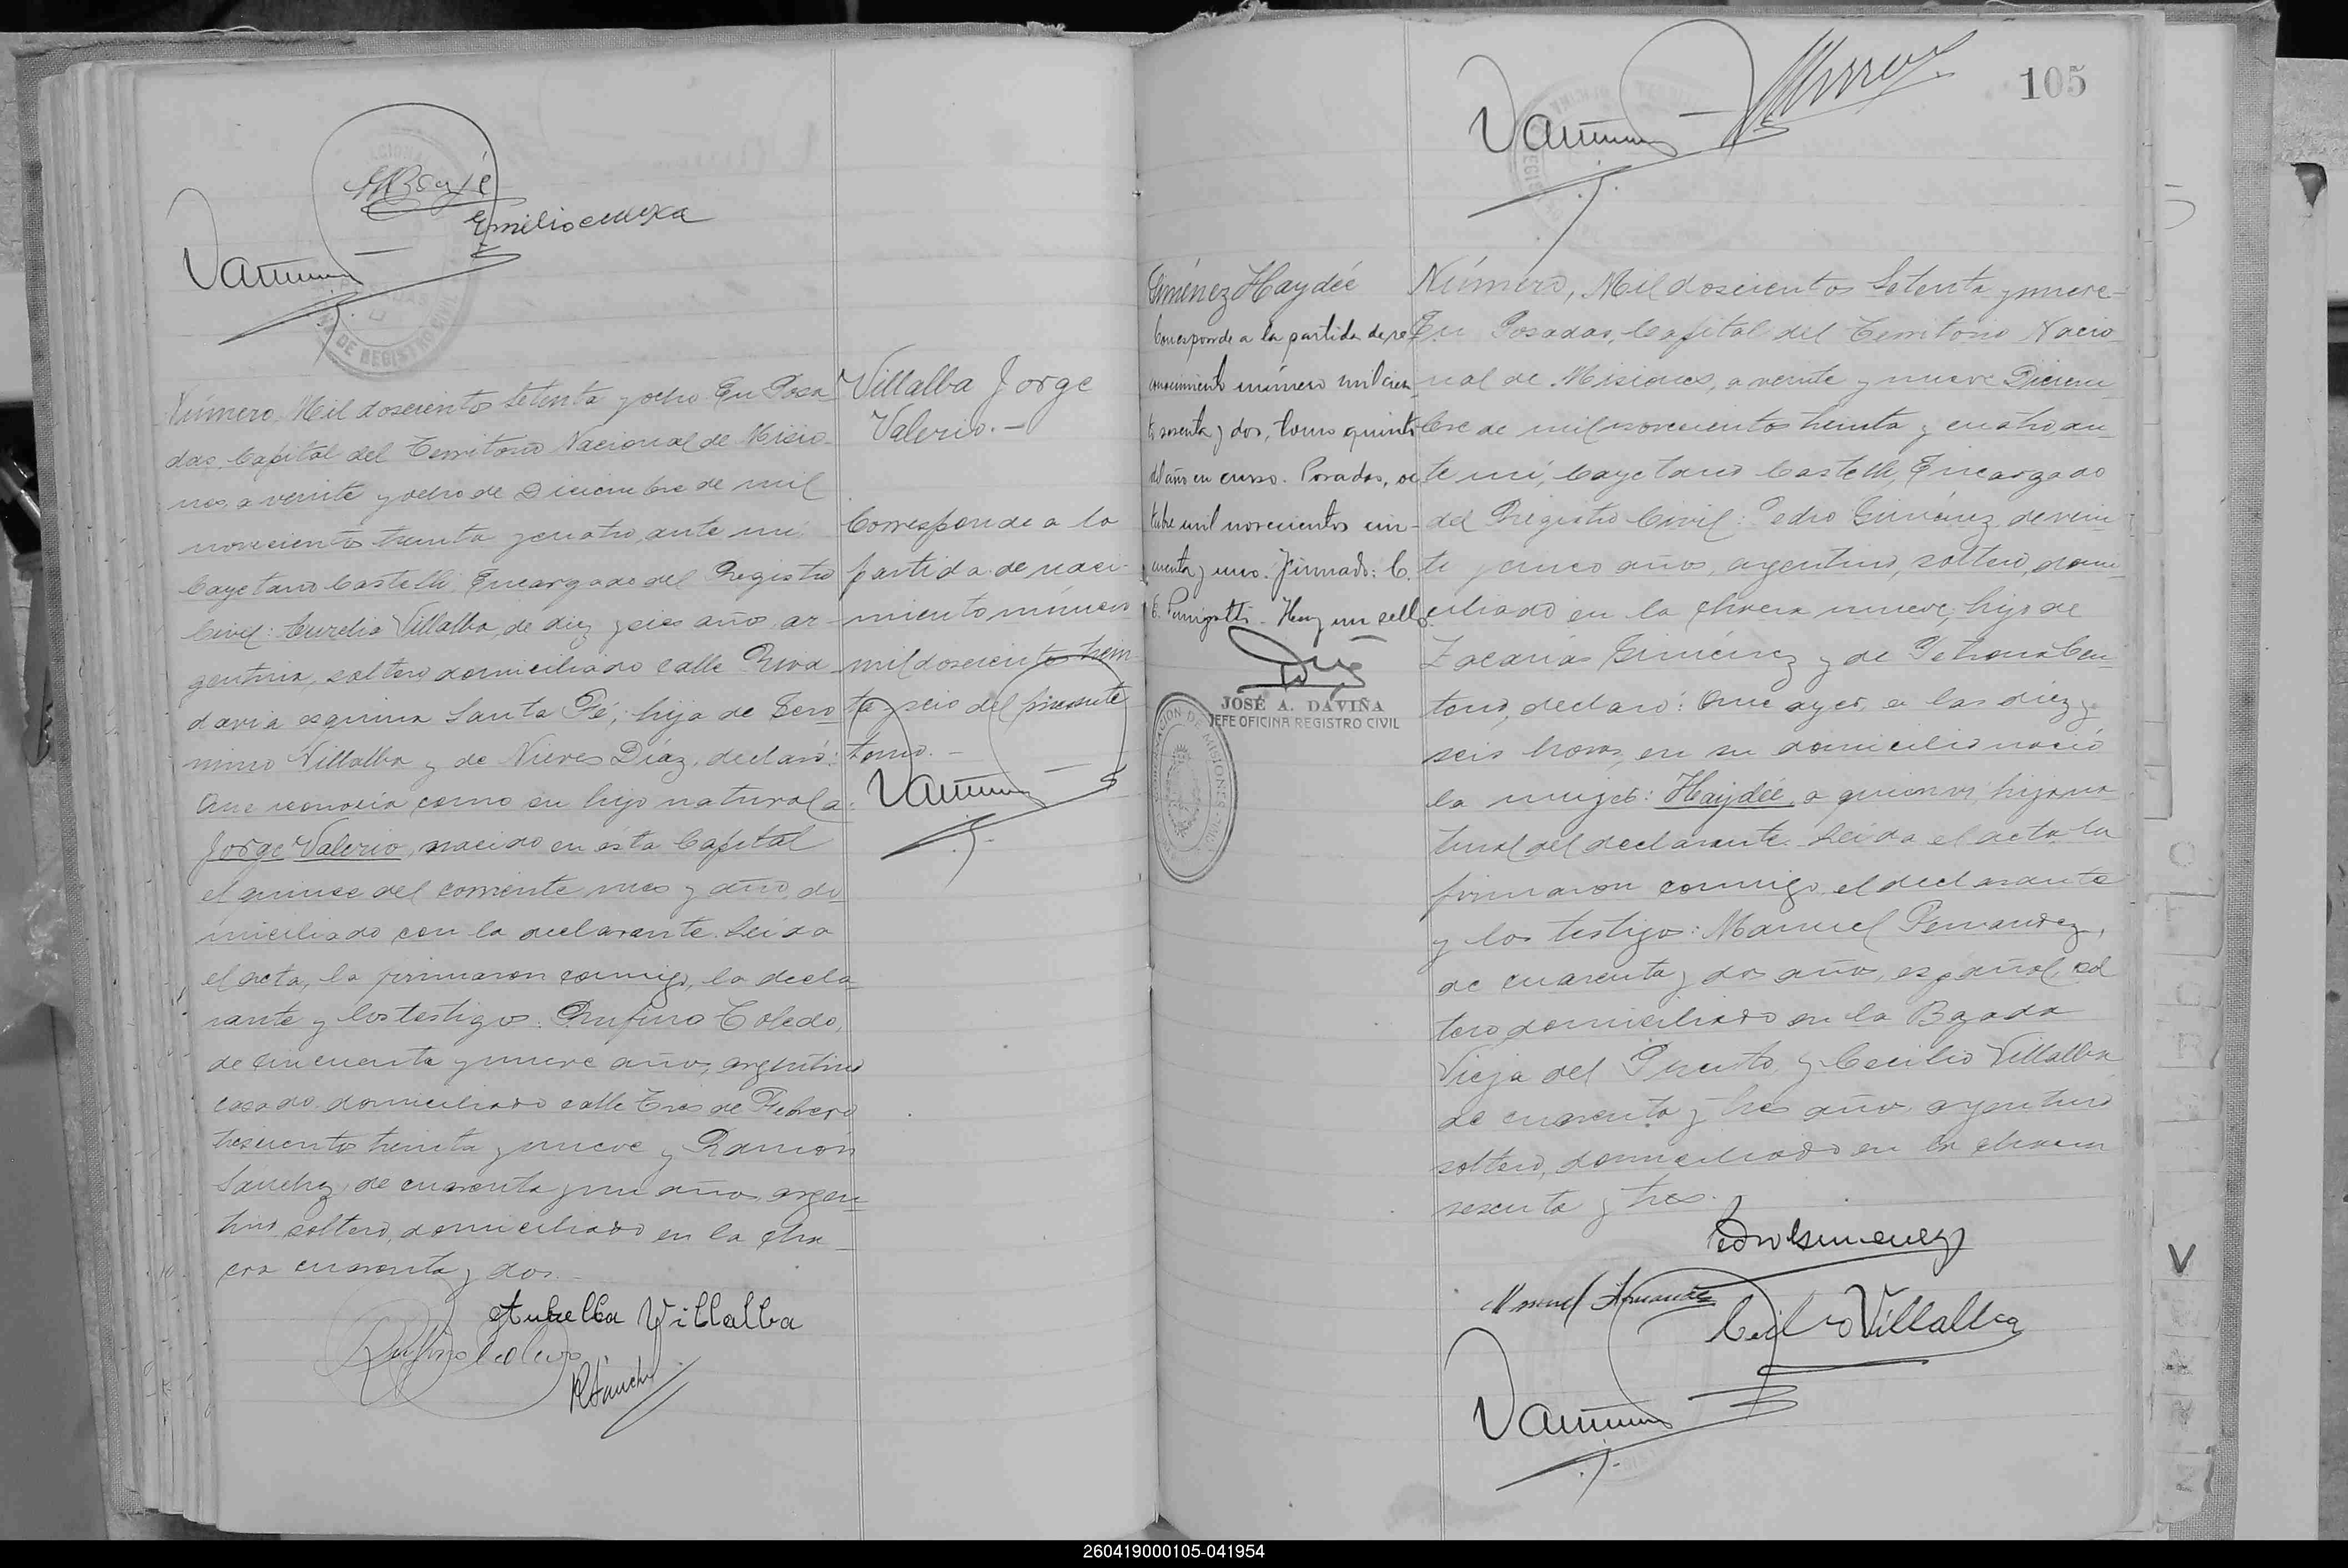 Emilio
Número Mil doscientos Setenta y ocho En Posa
das, Capital del Territorio Nacional de Misio-
nes, a veinte y ocho de Diciembre de mil
novecientos treinta y cuatro, ante mi
Cayetano Castelli, Encargado del Registro
Civil: Aurelia Villalba, de diez y seis años, ar-
gentina, soltera domiciliada calle Riva
davia esquina Santa Fé, hija de Gero
nimo Villalba y de Nieves Díaz, declaró:
Que reconocia como su hijo natural a
Jorge Valerio, nacido en ésta Capital
el quince del corriente mes y año, do
miciliado con la declarante. Leida
el acta, la firmaron conmigo, la decla
rante y los testigos: Rufino Toledo,
de cincuenta y nueve años, argentino
casado domiciliado calle Tres de Febrero
trescientos treinta y nueve y Ramón
Sanchez, de cuarenta y un años, argen
tino soltero, domiciliado en la cha-
cra cuarenta y dos.-
Aurelia Villalba
Rufino Toledo
R Sanchez
Villalba Jorge
Valerio.-
Corresponde a la
partida de naci-
miento número
mil doscientos trein
ta y seis del presente
tomo.-
105
Giménez Haydée
Corresponde a la partida de re
conocimiento número mil cien
to sesenta y dos, tomo quinto
del año en curso. Posadas, oc
tubre mil novecientos cin-
cuenta y uno. Firmado: C.
Hay un sello.
JOSÉ A. DAVIÑA
JEFE OFICINA REGISTRO CIVIL
Número, Mil doscientos Setenta y nueve-
En Posadas, Capital del Territorio Nacio
nal de Misiones, a veinte y nueve Diciem
bre de mil novecientos treinta y cuatro, an
te mi, Cayetano Castelli, Encargado
del Registro Civil: Pedro Giménez, de vein
te y cinco años, argentino, soltero, domi
ciliado en la chacra nueve, hijo de
Zacarías Giménez y de Petrona Cen
teno, declaró: Que ayer, a las diez y
seis horas, en su domicilio nació
la mujer: Haydée, a quien vi, hija na
tural del declarante. Leida el acta, la
firmaron conmigo, el declarante
y los testigos: Manuel Fernandez,
de cuarenta y dos años, español, sol
tero domiciliado en la Bajada
Vieja del Puerto, y Cecilio Villalba
de cuarenta y tres años, argentino
soltero, domiciliado en la chacra
sesenta y tres.
Pedro Gimenez
Manuel Fernandez
Cecilio Villalba
V
260419000105-041954